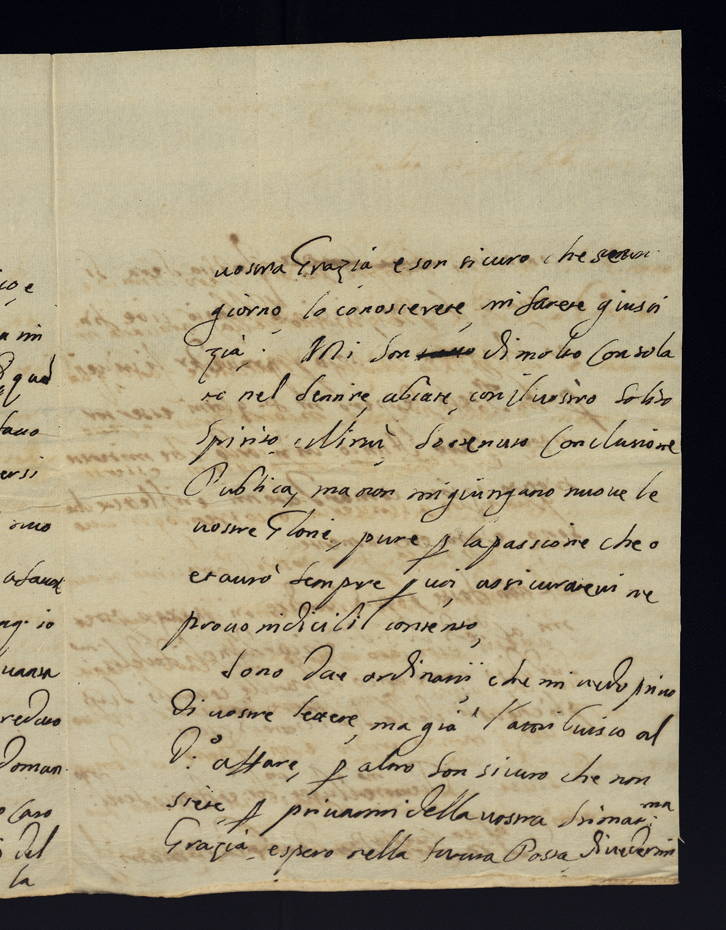 vostra Grazia e son sicuro che
giorno lo conoscerete, mi farete giusti
zia. Mi son di molto consola
to nel sentire, abiate, con il vostro solito
spirito sostenuto Conclusione
Publica, ma non mi giungano nuove le
vostre Glorie, pure p la passione che o
et aurò sempre p voi, assicuratevi ne
provo indicibil contento,
Sono due ordinarij che mi vedo privo
di vostre lettere, ma già l'attribuisco al
D:º affare, p altro son sicuro che non
siete p privarmi della vostra
Grazia, espero nella futura Posta di vedermi
io e
a mi
qual
ersi
ovo
io
doman
Caso
del
la